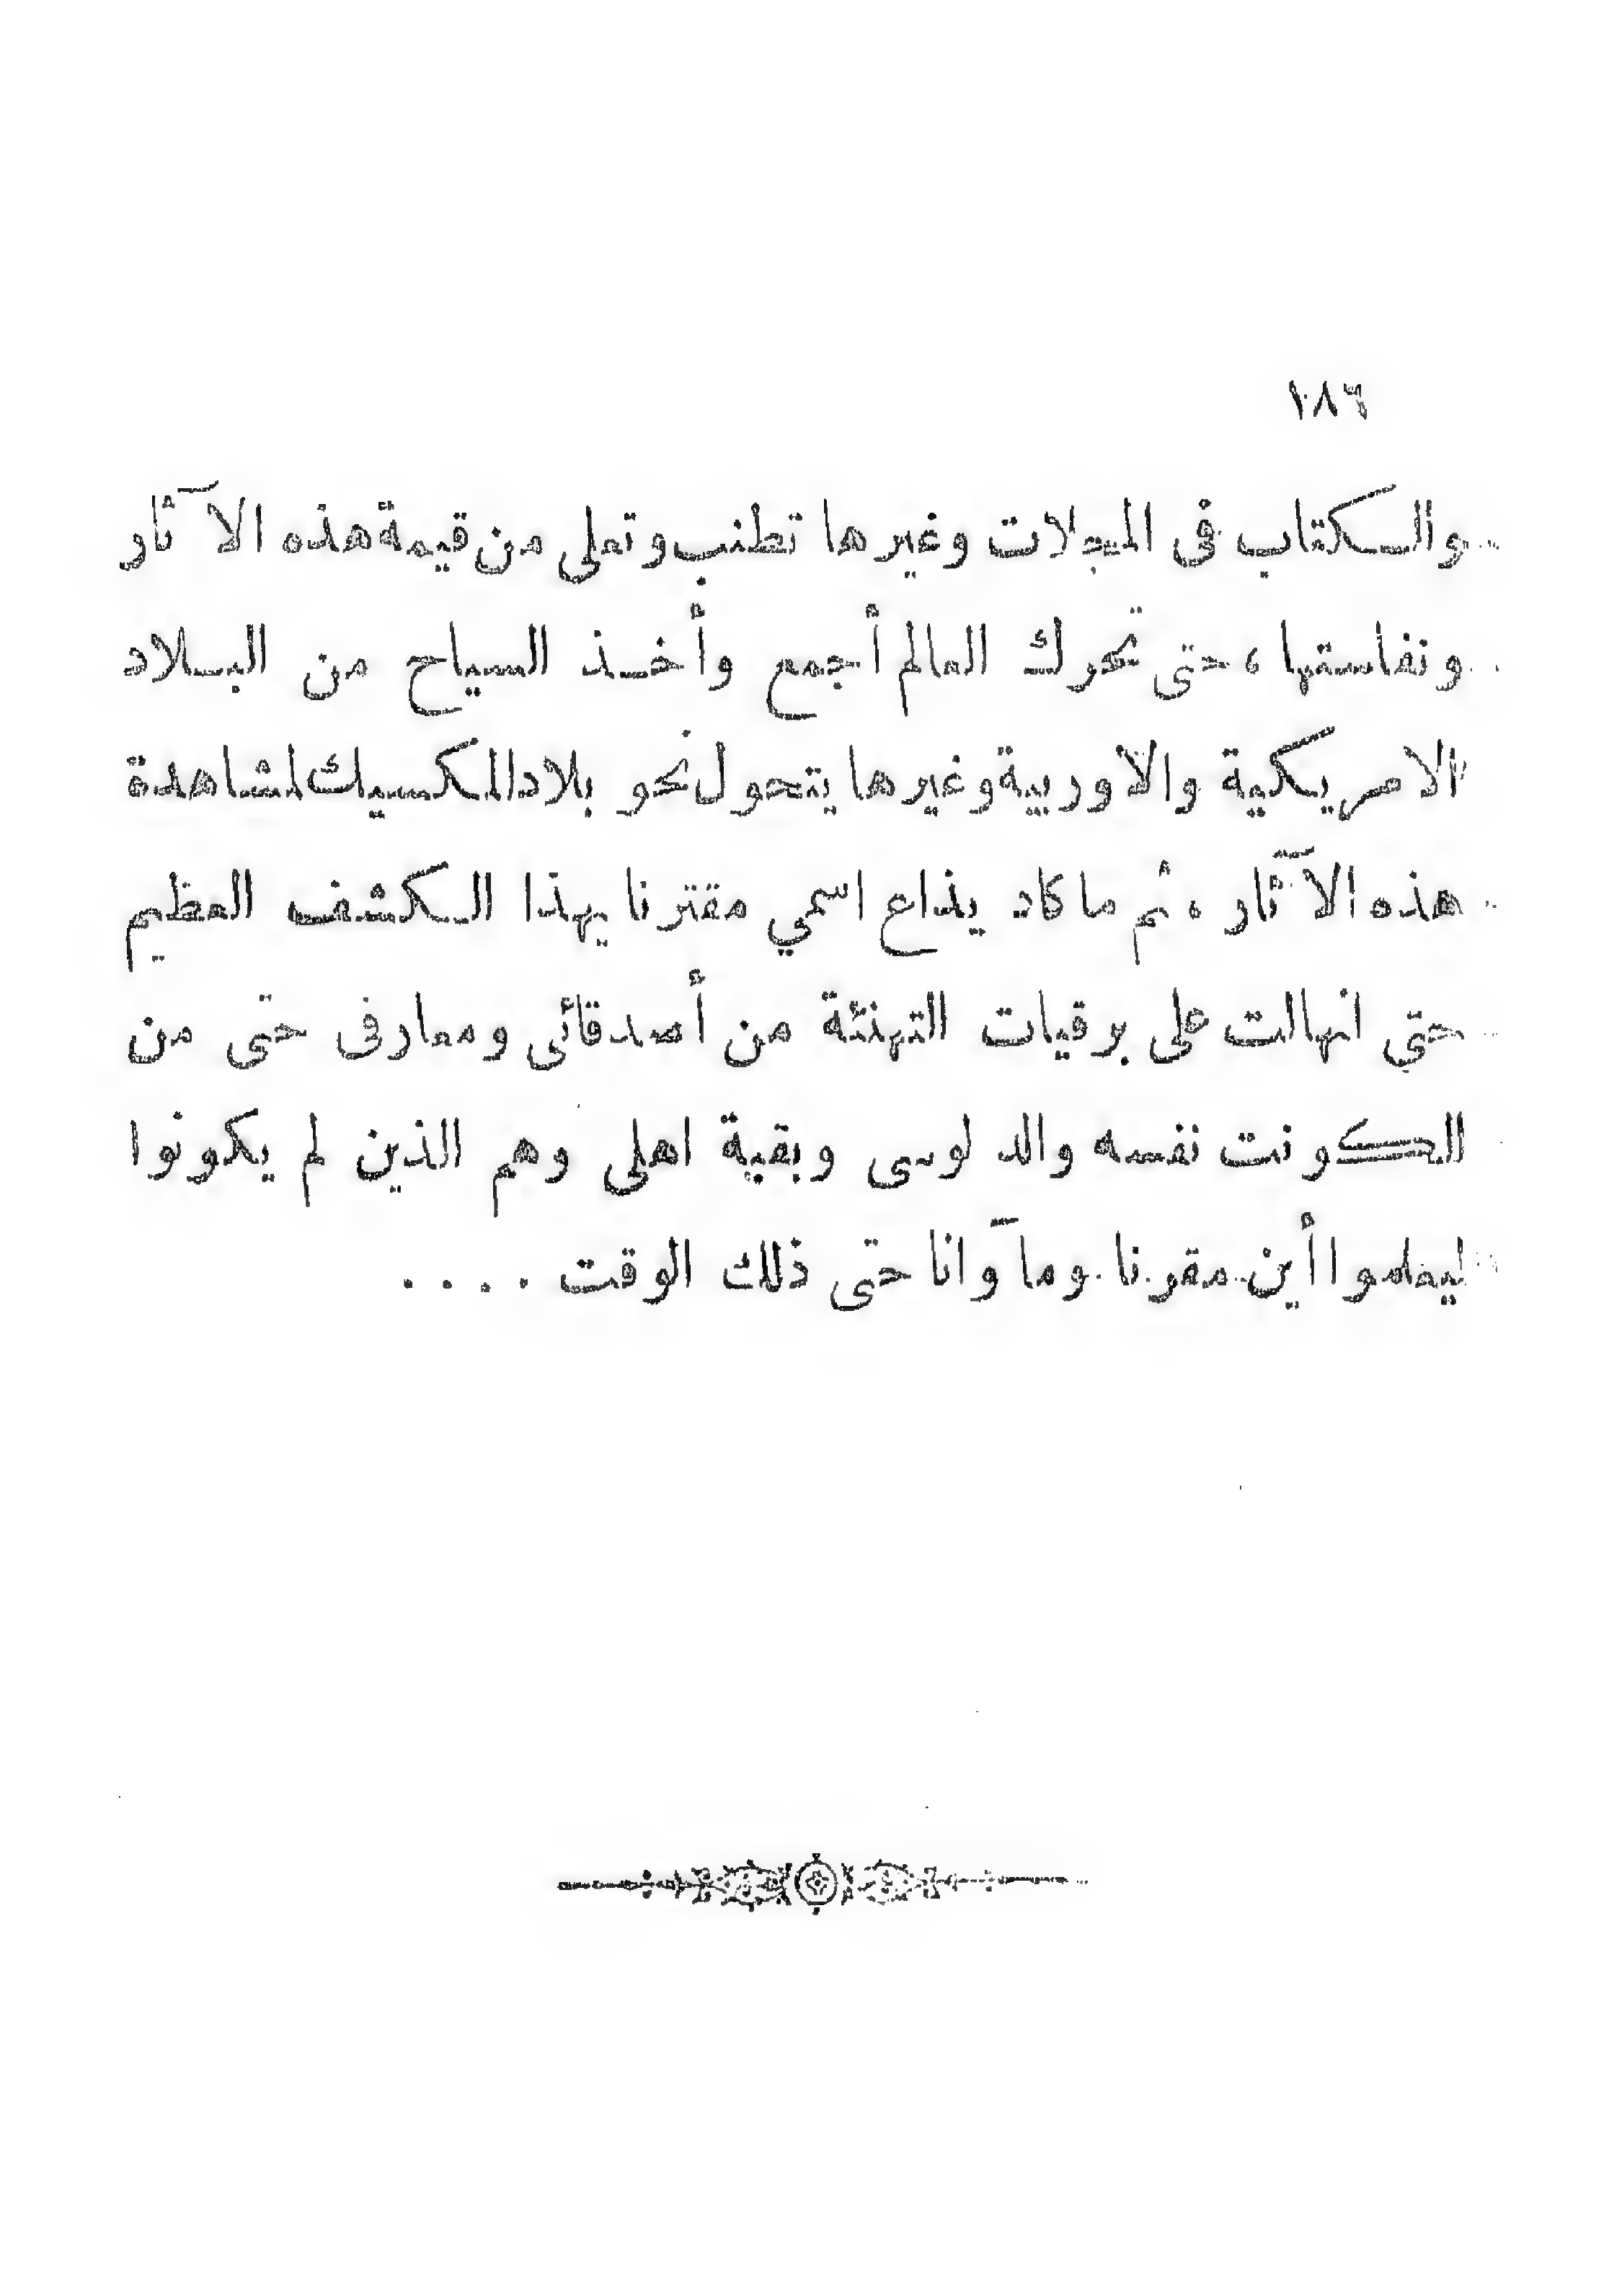 ١٨٦
والكتاب فى المجلات وغيرها تطنب وتعلى من قيمة هذه الآثار
ونفاستها ، حتى تحرك العالم أجمع وأخذ السياح من البلاد
الامريكية والاوربية وغيرها يتحول نحو بلاد المكسيك لمشاهدة
هذه الآثار ، ثم ما كاد يذاع اسمي مقترنا بهذا الكشف العظيم
حتى انهالت على برقيات التهنئة من أصدقائى ومعارفى حتى من
الكونت نفسه والد لوسى وبقية اهلى وهم الذين لم يكونوا
ليعلموا أين مقرنا وما وانا حتى ذلك الوقت ....